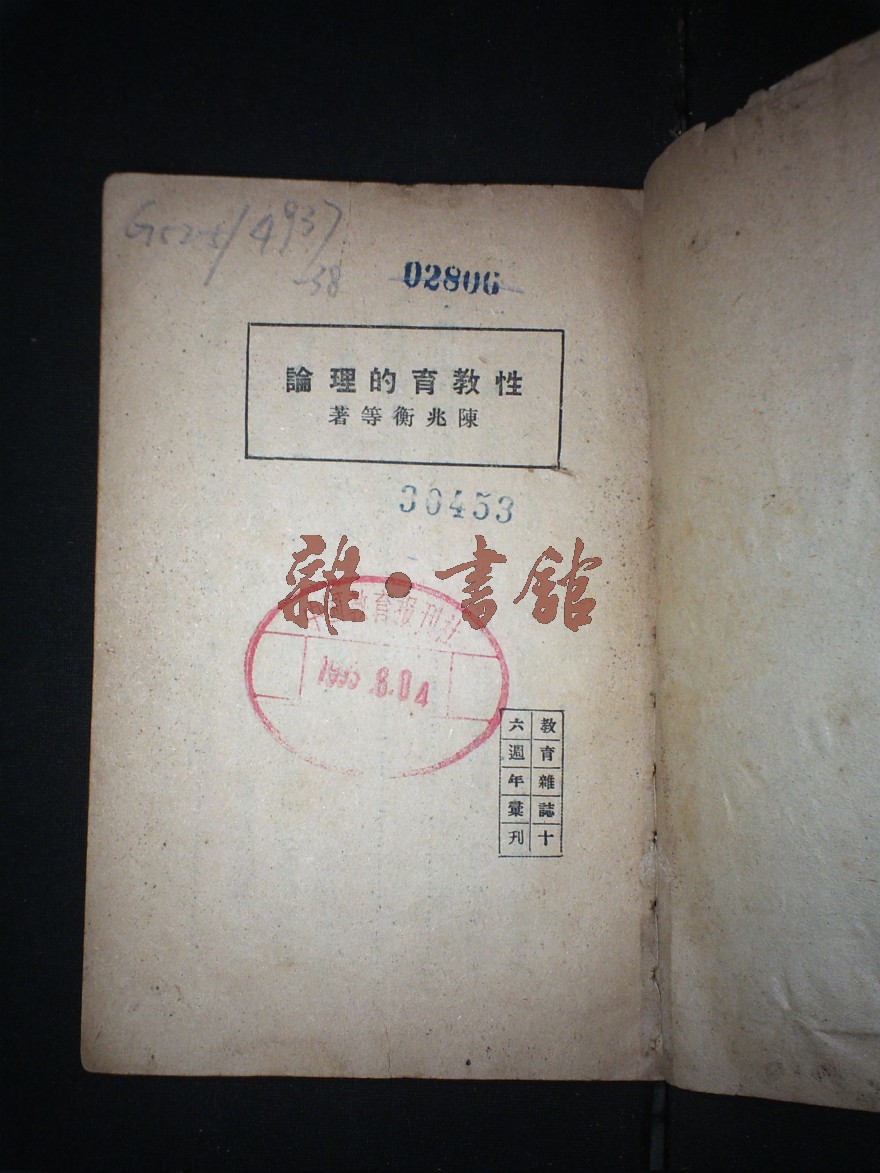 4937
-38
02806
性教育的理論
陳兆衡等著
30453
雜·書館
教育报刊社
8.04
教育雜誌十
六週年彙刊